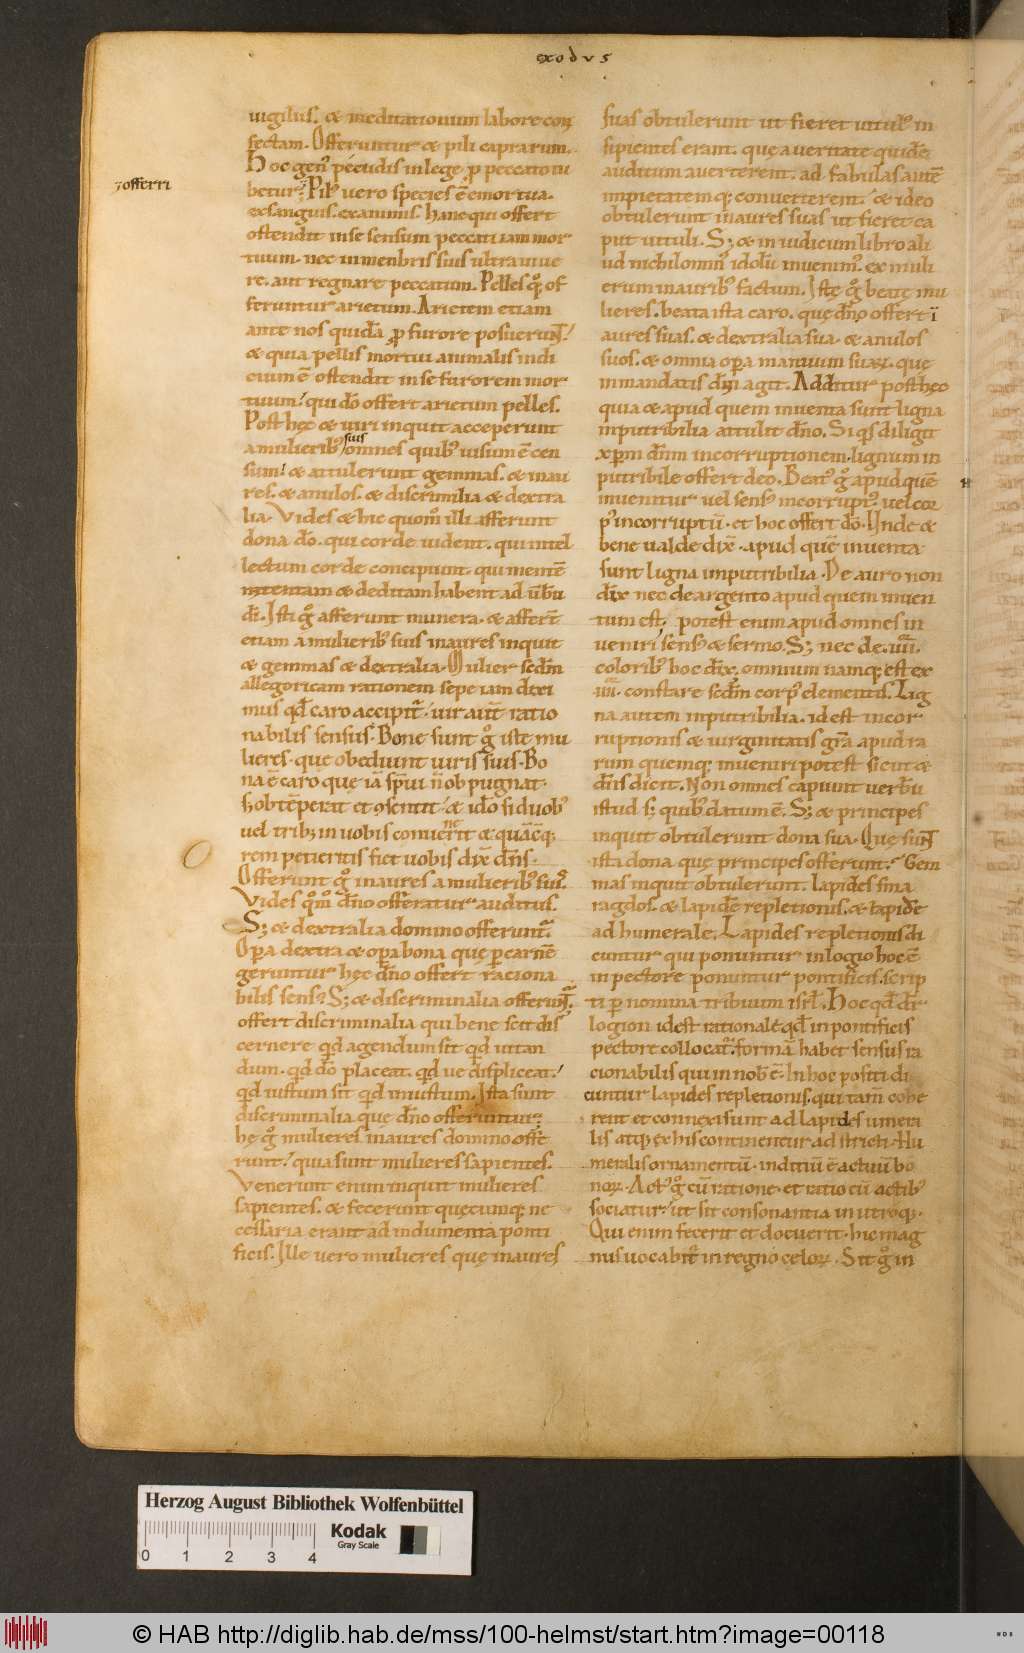 exodus
uigiliis. & meditationum labore con
fectam. Offeruntur & pili caprarum.
Hoc gen' pecudis in lege p peccato iu
betur. Pil' uero species ē emortua.
⁊ offerri
exsanguis. exanimis. hanc qui offert
ostendit in se sensum peccati iam mor
tuum. nec in menbris suis ultra uiue
re. aut regnare peccatum. Pelles q;̊ of
feruntur arietum. Arietem etiam
ante nos quidā p furore posuerunt.
& quia pellis mortui animalis indi
cium ē ostendit in se furorem mor
tuum. qui dō offert arietum pelles.
Post hęc & uiri inquit acceperunt
a mulierib' suis omnes quib' uisum ē cen
sum. & attulerunt gemmas. & inau
res. & anulos. & discrimilia & dextra
lia. Vides & hic quom̊ illi afferunt
dona dō. qui corde uident. qui intel
lectum corde concipiunt. qui mentē
intentam & deditam habent ad ūbū
dī. Isti g̊ afferunt munera. & affert̄
etiam a mulierib' suis inaures inquit
& gemmas & dextralia. Mulier secdm
allegoricam rationem sepe iam dixi
mus qd̄ caro accipit̄. uir aut̄ ratio
nabilis sensus. Bone sunt g̊ iste mu
lieres. que obediunt uiris suis. Bo
na ē caro que iā sp̄ui n̄ obpugnat.
s; obtēperat et cosentit. & ido si duob'
uel trib; in uobis conuenerit & quācq;
rem petieritis fiet uobis dix̄ dn̄s.
Offerunt g̊ inaures a mulierib' suis.
Vides qm̊ dn̄o offeratur auditus.
S; & dextralia domino offerunt̄.
Opa dextra & opa bona quę p carnē
geruntur hęc dn̄o offert raciona
bilis sens'. S; & discriminalia offerunt̄.
offert discriminalia qui bene scit dis
cernere qd agendum sit qd uitan
dum. qd dō placeat. qd ue displiceat.
qd iustum sit qd iniustum. Ista sunt
discriminalia que dn̄o offeruntur.
hę g̊ mulieres inaures domino offe
runt. quia sunt mulieres sapientes.
Venerunt enim inquit mulieres
sapientes. & fecerunt quecumq; ne
cessaria erant ad indumenta ponti
ficis. Ille uero mulieres quę inaures
suas obtulerunt ut fieret uitul' in
sipientes erant. quę a ueritate quidē
auditum auerterent. ad fabulas autē
impietatem q; conuerterent. & ideo
obtulerunt inaures suas ut fieret ca
put uituli. S; & in iudicum libro ali
ud nichilomin' idolū inuenim' ex muli
erum inaurib' factum. Istę g̊ beatę mu
lieres. beata ista caro. quę dn̄o offert ī
aures suas. & dextralia sua. & anulos
suos. & omnia opa manuum suaꝝ. quę
in mandatis dn̄i agit. Additur post hęc
quia & apud quem inuenta sunt ligna
inputribilia attulit dn̄o. Si qs diligit
xpm dn̄m in incorruptionem. lignum in
putribile offert deo. Beat' g̊ apud quē
inuenitur uel sens' incorrupt'. uel cor
p' incorruptū. et hoc offert dō. Unde &
bene ualde dix̄. apud quē inuenta
sunt ligna imputribilia. De auro non
dix̄ nec de argento apud quem inuen
tum est. potest enim apud omnes in
ueniri sens' & sermo. S; nec de .iiii.
colorib' hoc dix̄. omnium namq; est ex
.iiii. constare secdm corp' elementis. Lig
na autem inputribilia. id est incor
ruptionis & uirginitatis gr̄a apud ra
rum quemq; inueniri potest sicut &
dn̄s dicit. Non omnes capiunt uerbū
istud s; quib' datum ē. S; & principes
inquit obtulerunt dona sua. Quę sunt
ista dona quę principes offerunt? Gem
mas inquit obtulerunt. lapides sma
ragdos. & lapidē repletionis. & lapidē
ad humerale. Lapides repletionis di
cuntur qui ponuntur in logio hoc ē
in pectore ponuntur pontificis. scrip
ti p nomina tribuum isrl̄. Hoc qd̄ dr̄
logion id est rationale qd̄ in pontificis
pectore collocat̄. formā habet sensus ra
cionabilis qui in nob' ē. In hoc positi di
cuntur lapides repletionis. qui tam̄ cohe
rent et connexi sunt ad lapides umera
lis atq; ex his continentur adstricti. Hu
meralis ornamentū. indiciū ē actuū bo
noꝝ. Act' g̊ cū ratione. et ratio cū actib'
sociatur. ut sit consonantia in utroq;.
Qui enim fecerit et docuerit. hic mag
nus uocabit̄ in regno cęloꝝ. Sit g̊ in
Herzog August Bibliothek Wolfenbüttel
0 1 2 3 4
Kodak
Gray Scale
© HAB http://diglib.hab.de/mss/100-helmst/start.htm?image=00118